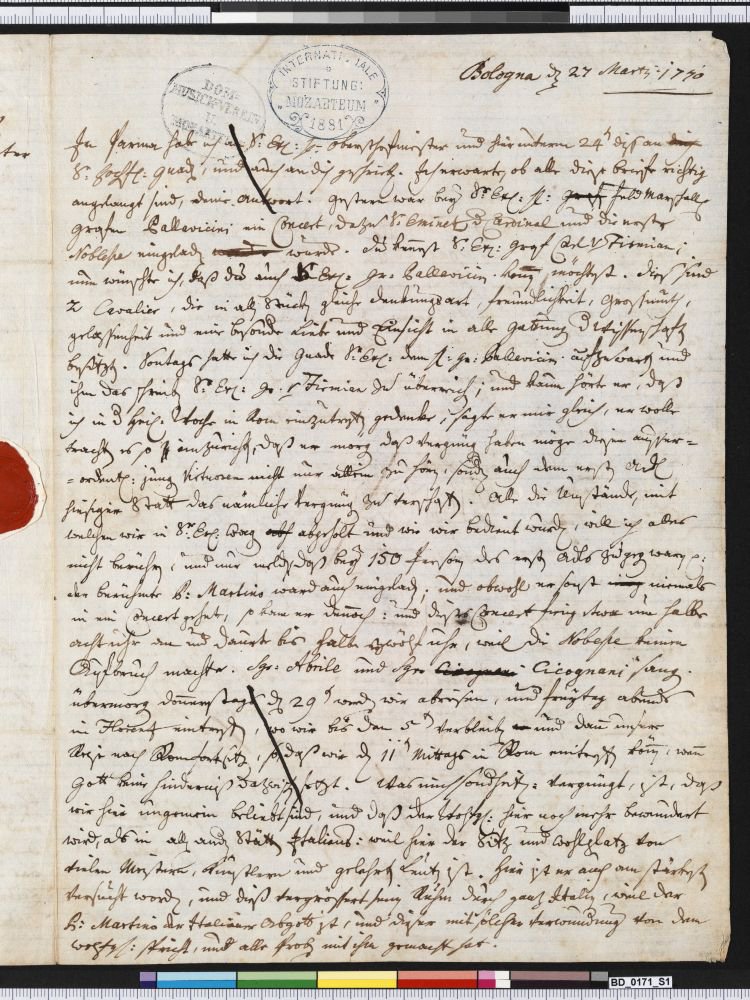 INTERNATIONALE
STIFTUNG:
"MOZARTEUM"
1881
DOM-
MUSICK-VEREIN
U.
MOZARTEUM
Bologna dz 27 Martj 1770
In Parma hab ich an Sr Exc: H: Obersthofmeister und hier unterm 24t diß an
Sr hochfl: Gnad, und auch an dich geschrieb. Ich erwarte, ob alle diese briefe richtig
angelangt sind, deine Antwort. Gestern war bey Sr Exc: H: Feld Marschalle
Grafen Pallavicini ein Concert, dazu Sr Eminenz d Cardinal und die erste
Noblesse eingelad wurde. Du kennst Sr Exc: Graf Carl v Firmian;
nun wünschte ich, daß du auch Sr Exc: Gr: Pallavicini kenn möchtest. Dies sind
2 Cavalier, die in all Stück gleiche denkungsart, freundlichkeit, Grossmuth,
gelassenheit und eine besondere Liebe und Einsicht in alle gattung d Wissenschaft
besitz. Sontags hatte ich die Gnade Sr Exc: dem H: Gr: Pallavicini aufzuwart und
ihm das schreib Sr Exc: Gr: v Firmian zu überreich; und kaum hörte er, daß
ich in d heil: Woche in Rom einzutreff gedenke, sagte er mir gleich, er wolle
tracht es so einzuricht, daß er morg das Vergnüg haben möge diesen ausser=
=ordentl: jung Virtuosen nicht nur allein zu hör, sond auch dem erst Adl
hiesiger Statt das nämliche Vergnüg zu verschaff. Alle die Umstände, mit
welchen wir in Sr Exc: Wag abgeholt und wie wir bedient wurd, will ich alles
nicht berühr, und nur meld, daß bey 150 Person des erst Adls zugeg war
der berühmte P: Martino ward auch eingelad, und obwohl er sonst niemals
in ein Concert gehet, so kam er dennoch: und dieses Concert fieng etwa um halbe
acht uhr an und dauerte bis halbe zwölf uhr, weil die Noblesse keinen
Aufbruch machte. Sgr: Aprile und Sgr Cicognani sang.
übermorg donnerstags dz 29t werd wir abreisen, und freytag abends
in Florenz eintreff, wo wir bis den 5t verbleib und dann unsere
Reise nach Rom fortsetz, so, daß wir dz 11t Mittags in Rom eintreff könn, wenn
Gott keine hinderniß dazwischen setzt. Was mich sonderheitl: vergnügt, ist, daß
wir hier ungemein beliebt sind, und daß der Wolfg: hier noch mehr bewundert
wird, als in all and Stätt Italiens: weil hier der Sitz und Wohlplatz von
vielen Meistern, Künstlern und gelehrt Leut ist. hier ist er auch am stärkest
versucht word, und dieß vergrössert sein Ruhm durch ganz Italien, weil der
P: Martino der Italiäner Abgott ist, und dieser mit solcher Verwunderung von dem
Wolfg: spricht, und alle Prob mit ihm gemacht hat.
BD_0171_S1